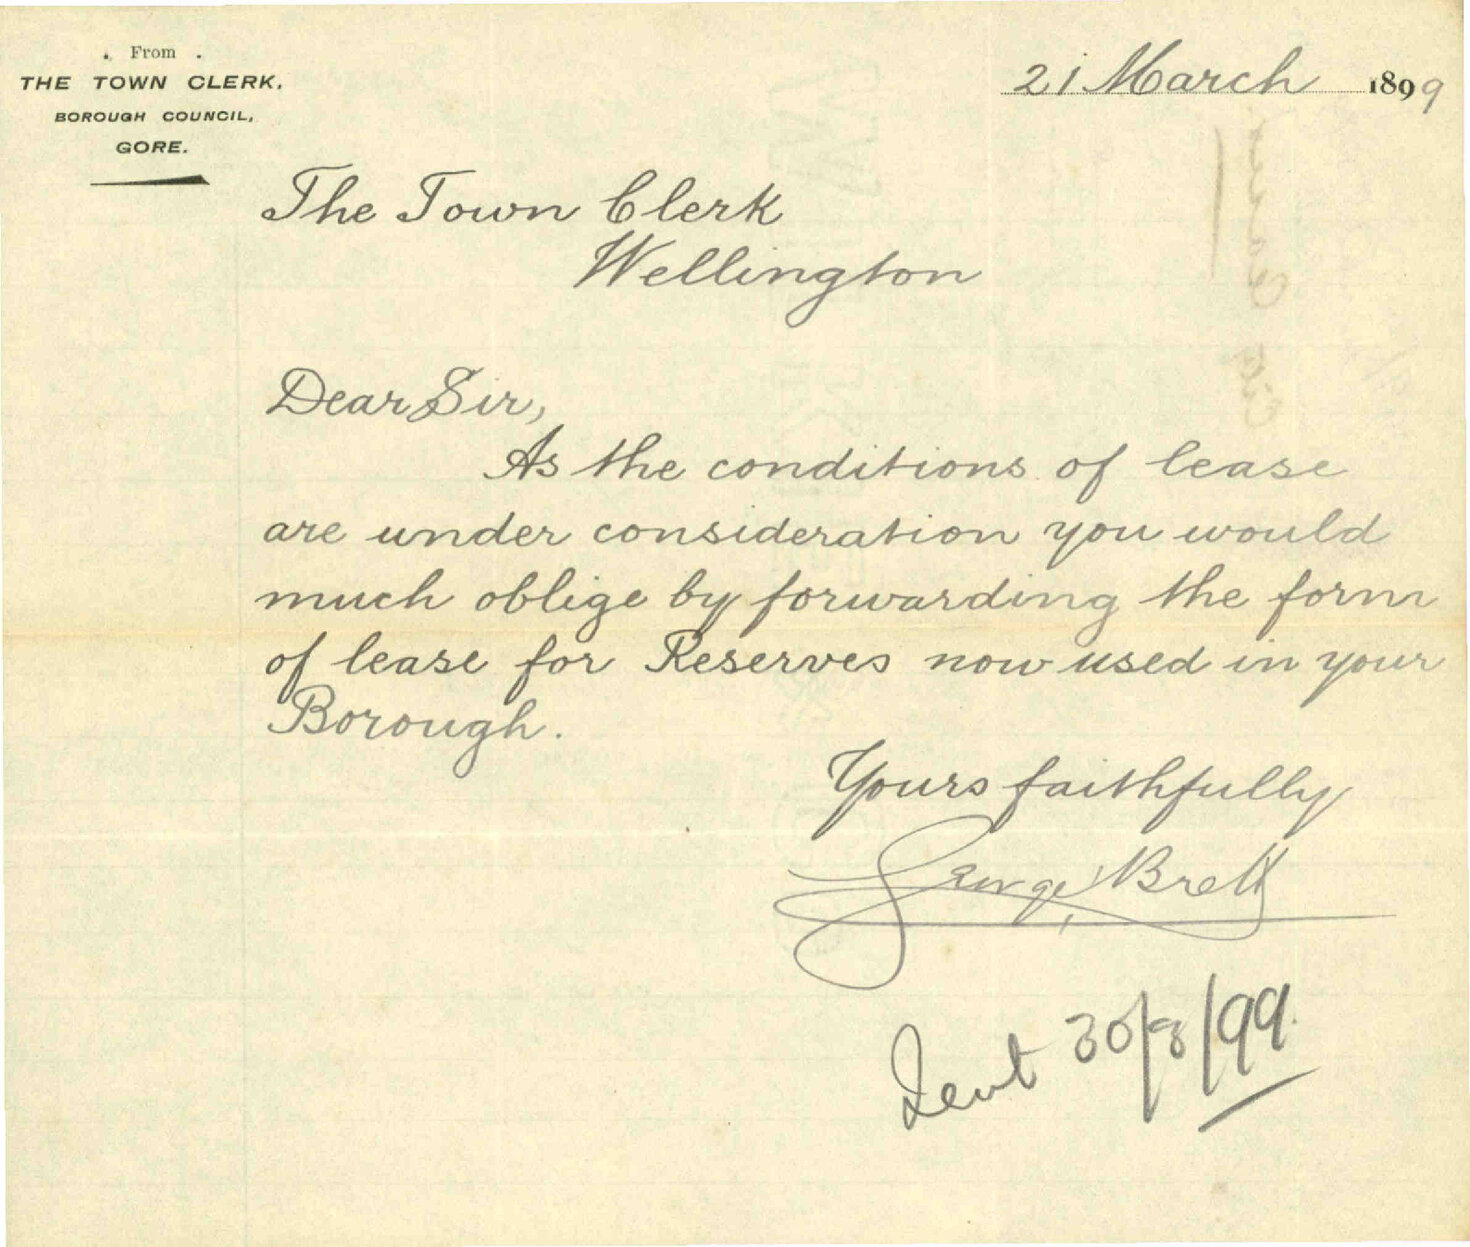 . From .
THE TOWN CLERK.
BOROUGH COUNCIL,
GORE.
21 March 1899
The Town Clerk
Wellington
Dear Sir,
As the conditions of lease
are under consideration you would
much oblige by forwarding the form
of lease for Reserves now used in your
Borough.
Yours faithfully
George Brett
Sent 30/8/99.